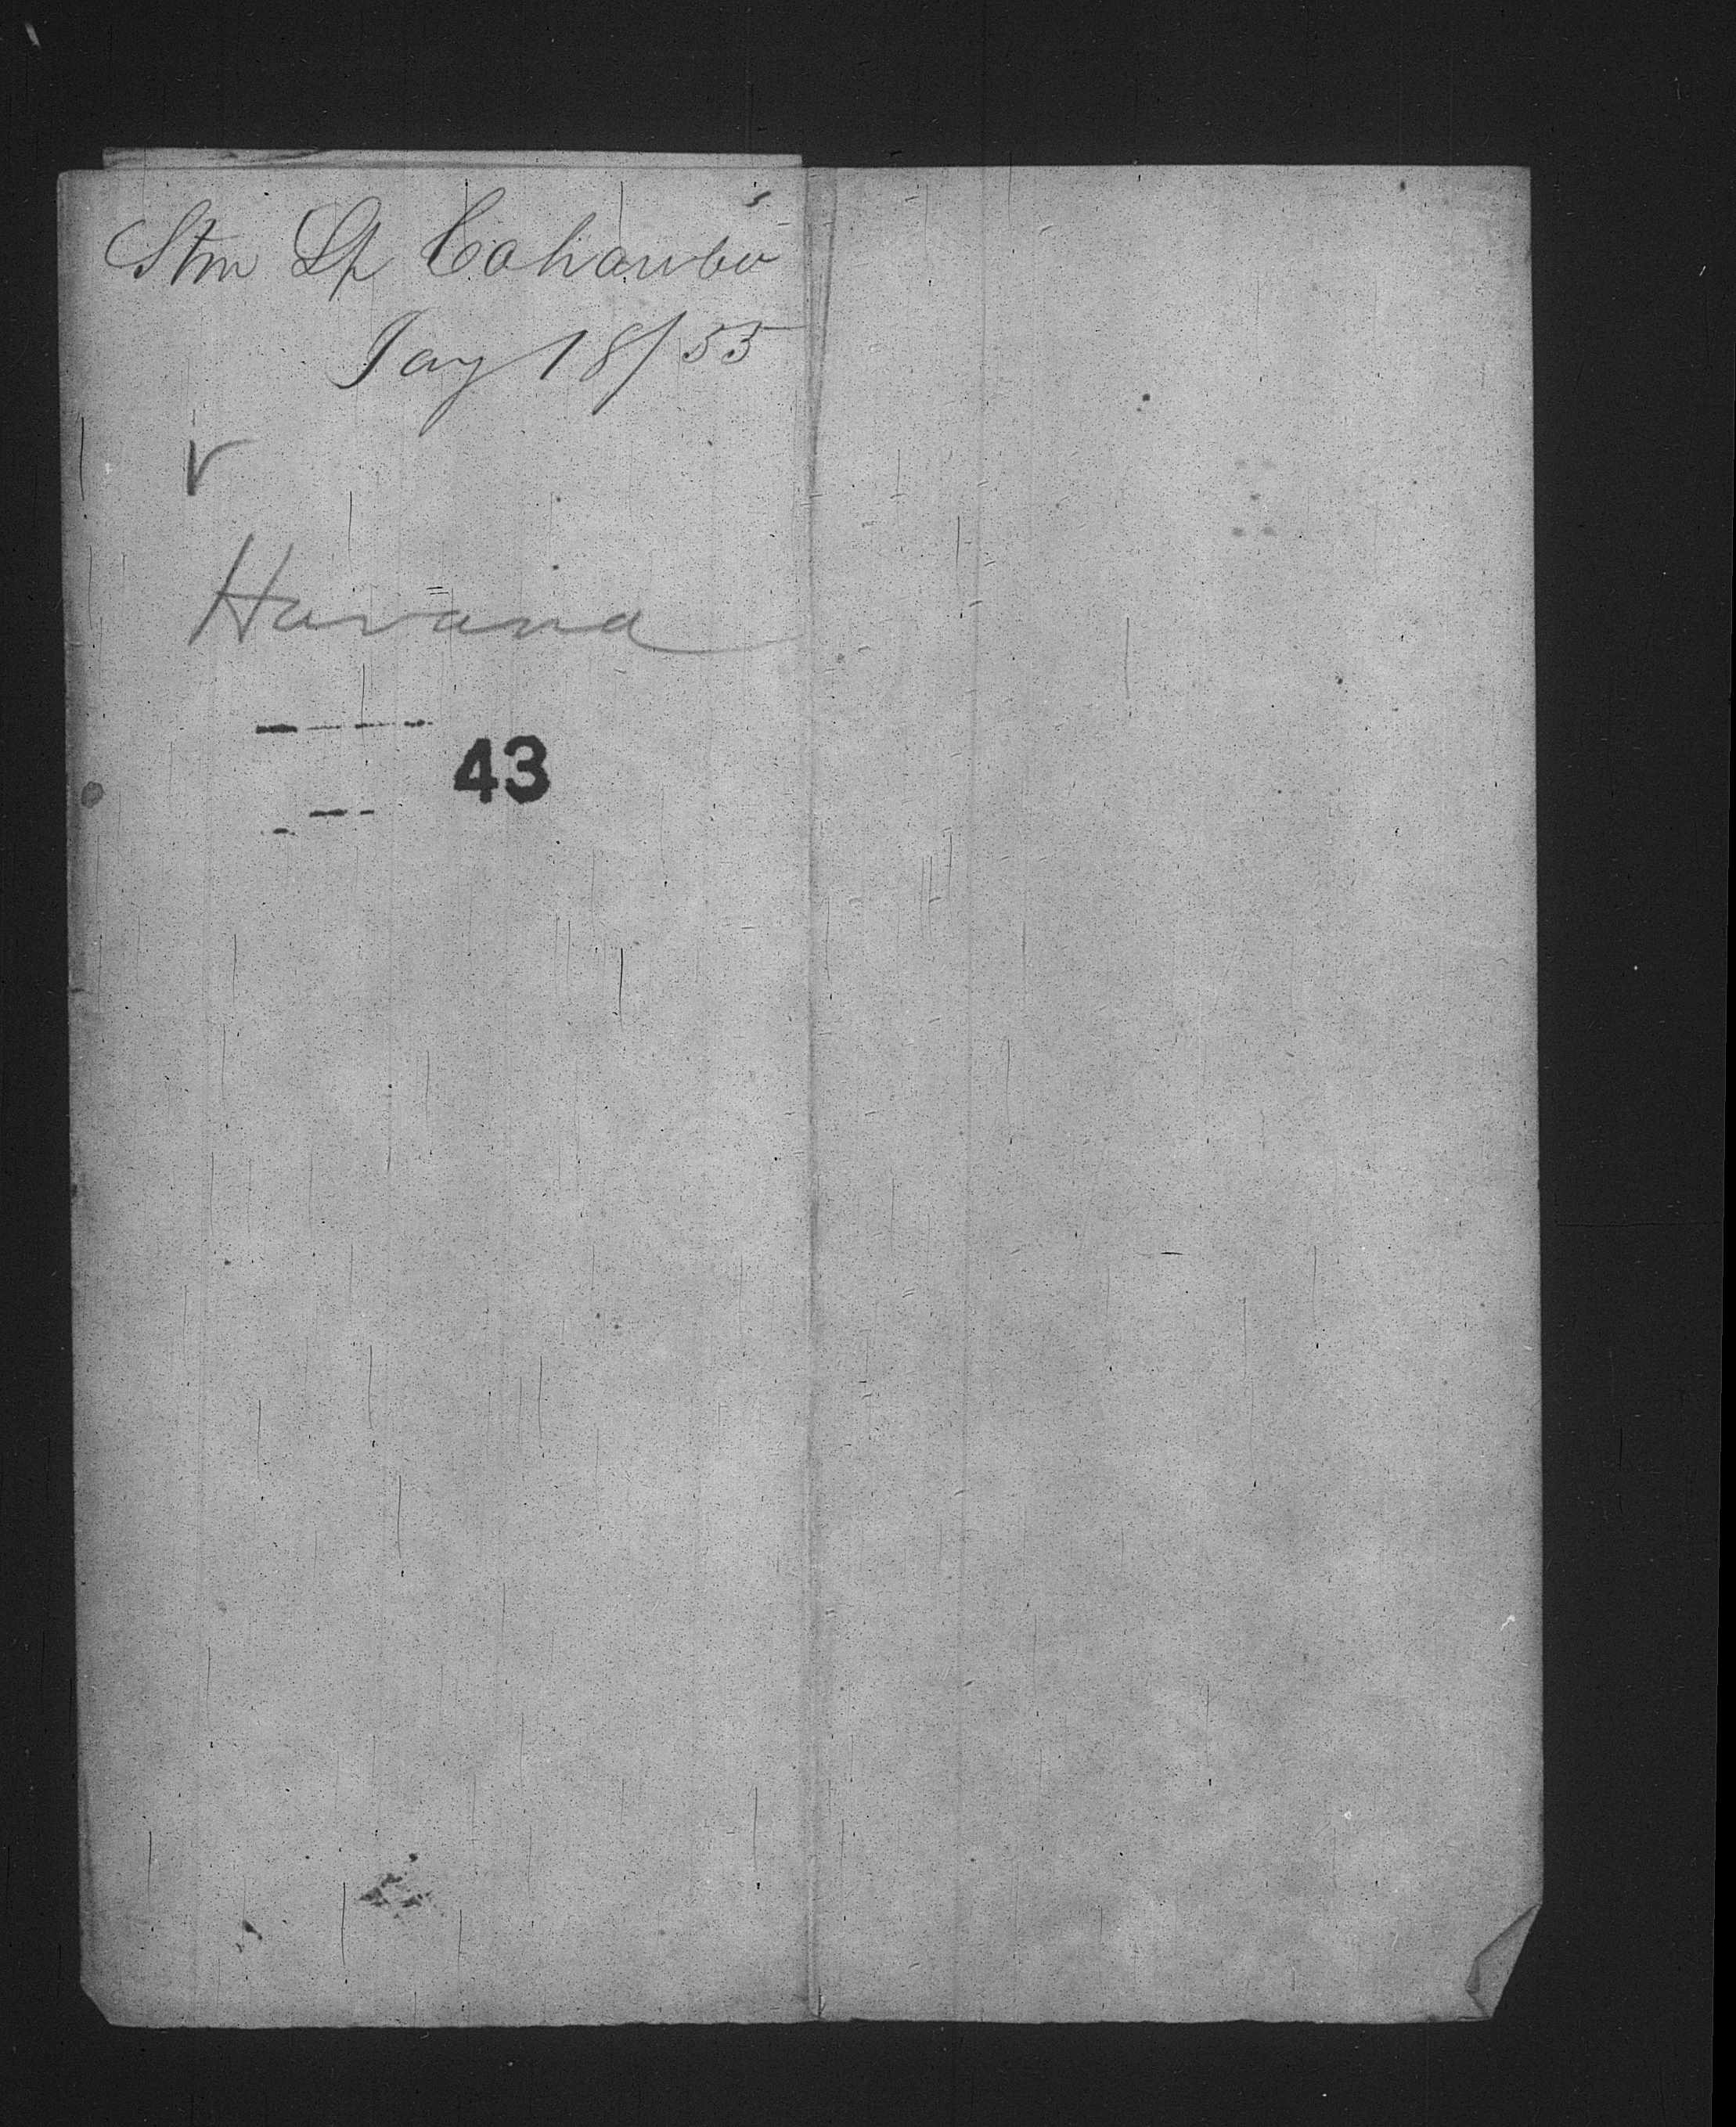 Stm Sp Cahawba
Jay 18/55
Havana
43